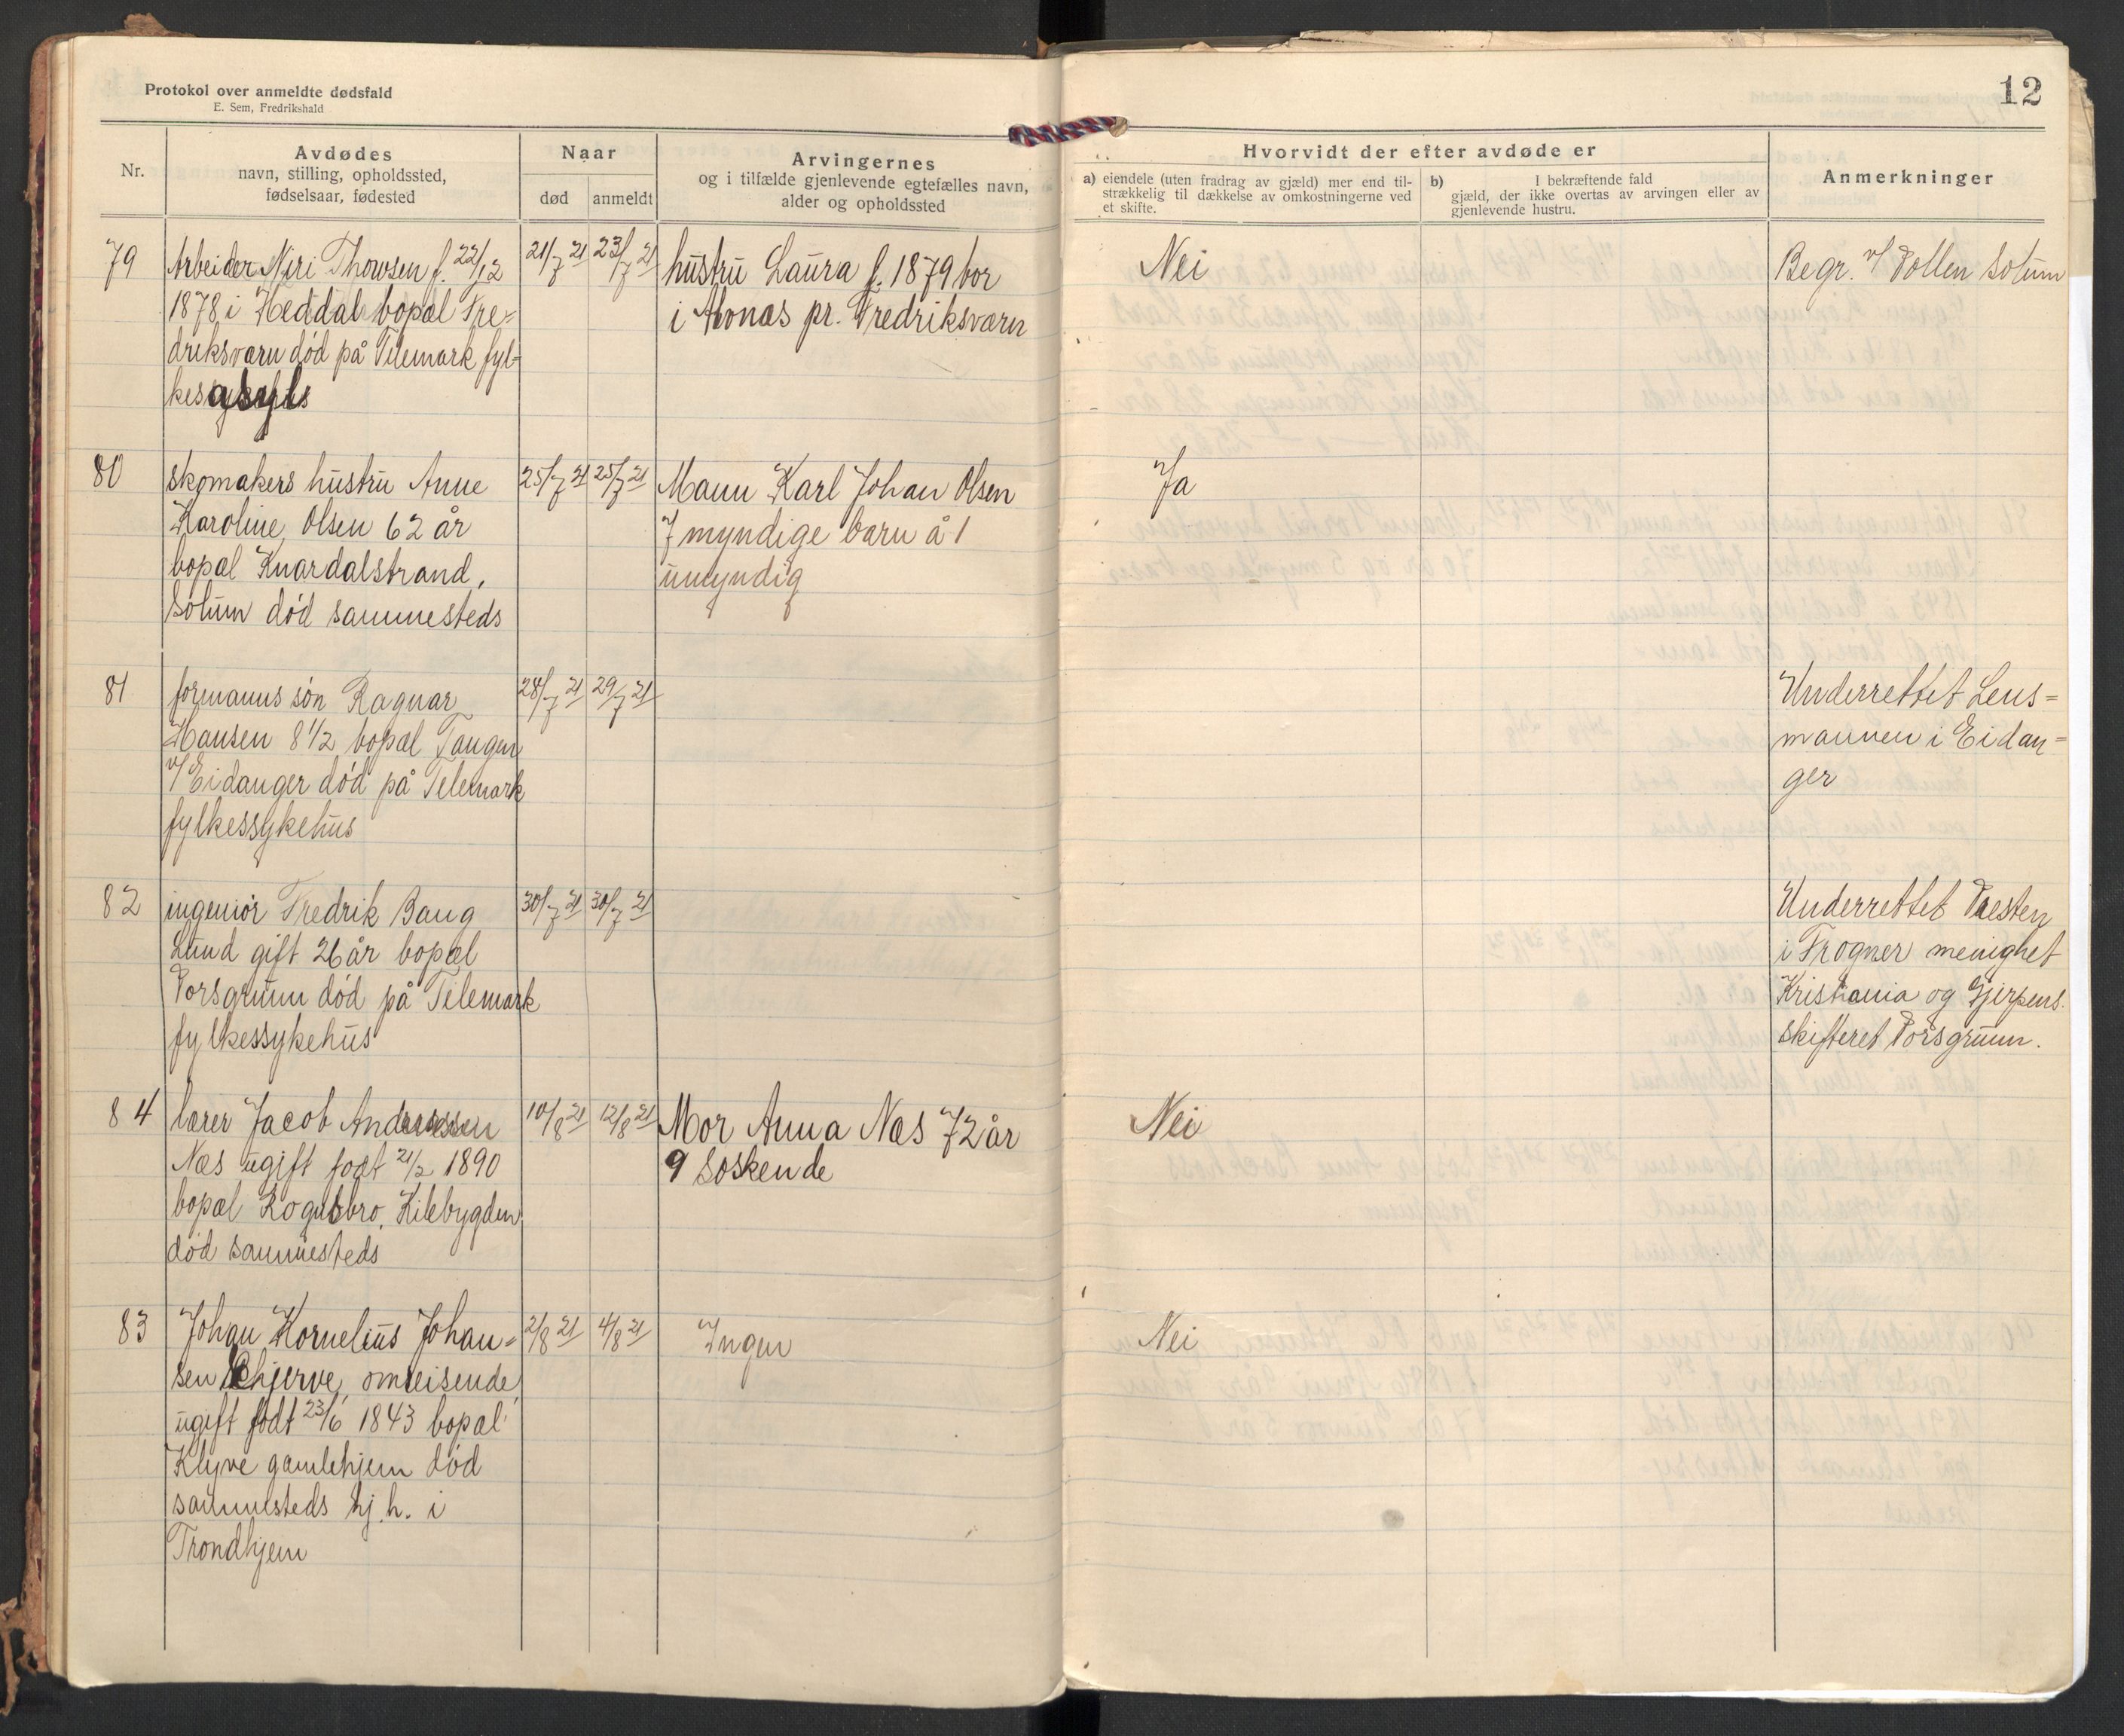 Protokol over anmeldte dødsfald
E. Sem, Fredrikshald
12
Nr.
Avdødes
navn, stilling, opholdssted,
fødselsaar, fødested
Naar
død
anmeldt
Arvingernes
og i tilfælde gjenlevende egtefælles navn,
alder og opholdssted
Hvorvidt der efter avdøde er
a) eiendele (uten fradrag av gjæld) mer end til-
strækkelig til dækkelse av omkostningerne ved
et skifte.
b) I bekræftende fald
gjæld, der ikke overtas av arvingen eller av
gjenlevende hustru.
Anmerkninger
79
Arbeider Thowsen f. 22/12
1878 i Heddal bopæl Fre=
driksværn død på Telemark fyl=
kesasyls
21/7 21
23/7 21
hustru Laura f. 1879 bor
i pr. Fredriksværn
Nei
Begr. v/ Pollen Solum
80
skomakers hustru Anne
Karoline Olsen 62 år
bopæl Knardalstrand,
Solum død sammesteds
25/7 21
25/7 21
Mann Karl Johan Olsen
7 myndige barn å 1
umyndig
Ja
81
formanns søn Ragnar
Hansen 8 1/2 bopæl Tangen
v/ Eidanger død på Telemark
fylkessykehus
28/7 21
29/7 21
Underrettet Lens=
mannen i Eidan=
ger
82
ingeniør Fredrik Bang
Lund gift 26 år bopæl
Porsgrunn død på Telemark
fylkessykehus
30/7 21
30/7 21
Underrettet Presten
i Frogner menighet
Kristiania og Gjerpens
skifteret Porsgrunn.
84
lærer Jacob Andreassen
Næs ugift født 21/2 1890
bopæl Rognsbro, Kilebygden
død sammesteds
10/8 21
12/8 21
Mor Anna Næs 72 år
9 Søskende
Nei
83
Johan Kornelius Johan=
sen omreisende,
ugift født 23/6 1843 bopæl
Klyve gamlehjem død
sammesteds hj. h. i
Trondhjem
2/8 21
4/8 21
Ingen
Nei